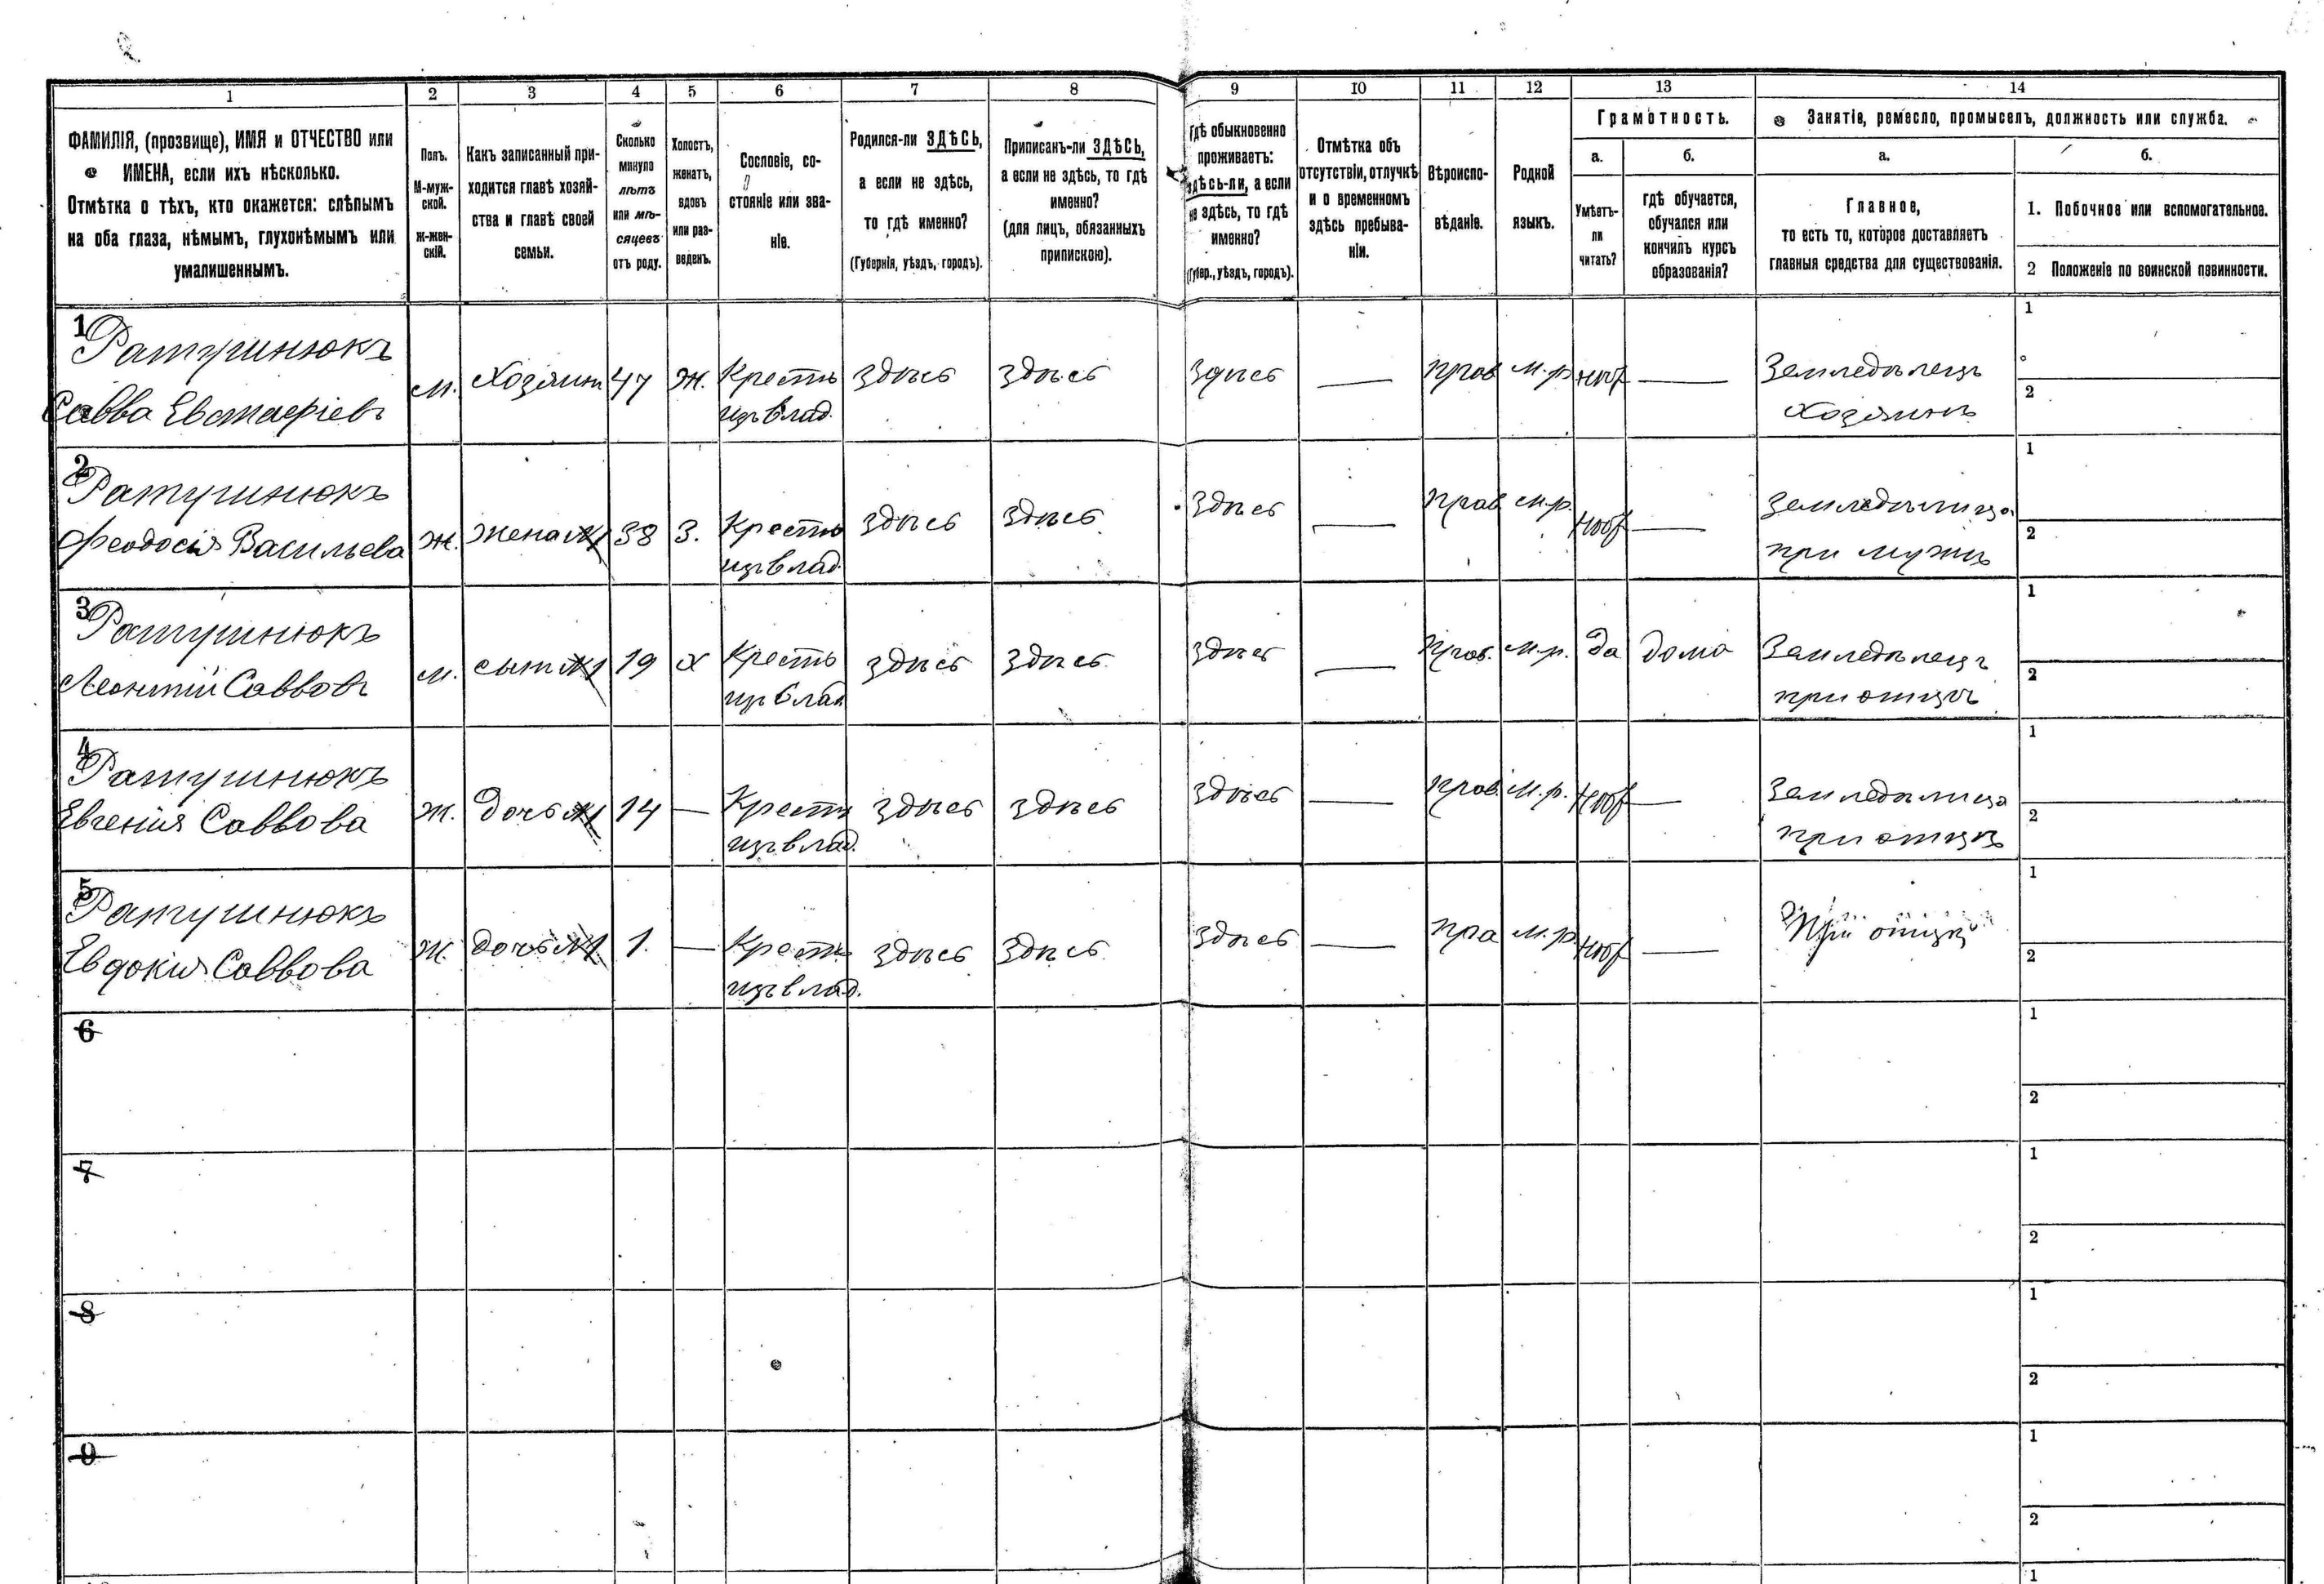 1 2 3 4 5 6 7 8 9 10 11 12 13 14
ФАМИЛІЯ, (прозвище), ИМЯ и ОТЧЕСТВО или
ИМЕНА, если ихъ нѣсколько.
Отмѣтка о тѣхъ, кто окажется: слѣпымъ
на оба глаза, нѣмымъ, глухонѣмымъ или
умалишеннымъ.
Полъ.
М-муж-
ской.
Ж-жен-
скій.
Какъ записанный при-
ходится главѣ хозяй-
ства и главѣ своей
семьи.
Сколько
минуло
лѣтъ
или мѣ-
сяцевъ
отъ роду.
Холостъ,
женатъ,
вдовъ
или раз-
веденъ.
Сословіе, со-
стояніе или зва-
ніе.
Родился-ли ЗДѢСЬ,
а если не здѣсь,
то гдѣ именно?
(Губернія, уѣздъ, городъ).
Приписанъ-ли ЗДѢСЬ,
а если не здѣсь, то гдѣ
именно?
(для лицъ, обязанныхъ
припискою).
Гдѣ обыкновенно
проживаетъ:
здѣсь-ли, а если
не здѣсь, то гдѣ
именно?
(Губер., уѣздъ, городъ).
Отмѣтка объ
отсутствіи, отлучкѣ
и о временномъ
здѣсь пребыва-
ніи.
Вѣроиспо-
вѣданіе.
Родной
языкъ.
Грамотность.
а.
Умѣетъ-
ли
читать?
б.
гдѣ обучается,
обучался или
кончилъ курсъ
образованія?
Занятіе, ремесло, промыселъ, должность или служба.
а.
Главное,
то есть то, которое доставляетъ
главныя средства для существованія.
б.
1. Побочное или вспомогательное.
2 Положеніе по воинской повинности.
1 Ратушнюкъ
Савва Евстафіевъ
м. Хозяинъ 47 Ж. Крестъ
изъ влад.
здѣсь здѣсь здѣсь — прав м.р. —
Земледѣлецъ
Хозяинъ
1
2
2 Ратушнюкъ
Феодосія Васильева
ж. жена 38 З. Крестъ
изъ влад.
здѣсь здѣсь здѣсь — прав м.р. —
Земледѣлица
при мужѣ
1
2
3 Ратушнюкъ
Леонтій Саввовъ
м. сынъ 19 Х Крестъ
изъ влад
здѣсь здѣсь здѣсь — Прав. м.р. да дома
Земледѣлецъ
при отцѣ
1
2
4 Ратушнюкъ
Евгенія Саввова
ж. дочь 14 — Крестъ
изъ влад.
здѣсь здѣсь здѣсь — прав. м.р. —
Земледѣлица
при отцѣ
1
2
5 Ратушнюкъ
Евдокия Саввова
ж. дочь 1. — Крестъ
изъ влад.
здѣсь здѣсь здѣсь — пра м.р. —
При отцѣ
1
2
6
1
2
7
1
2
8
1
2
9
1
2
1